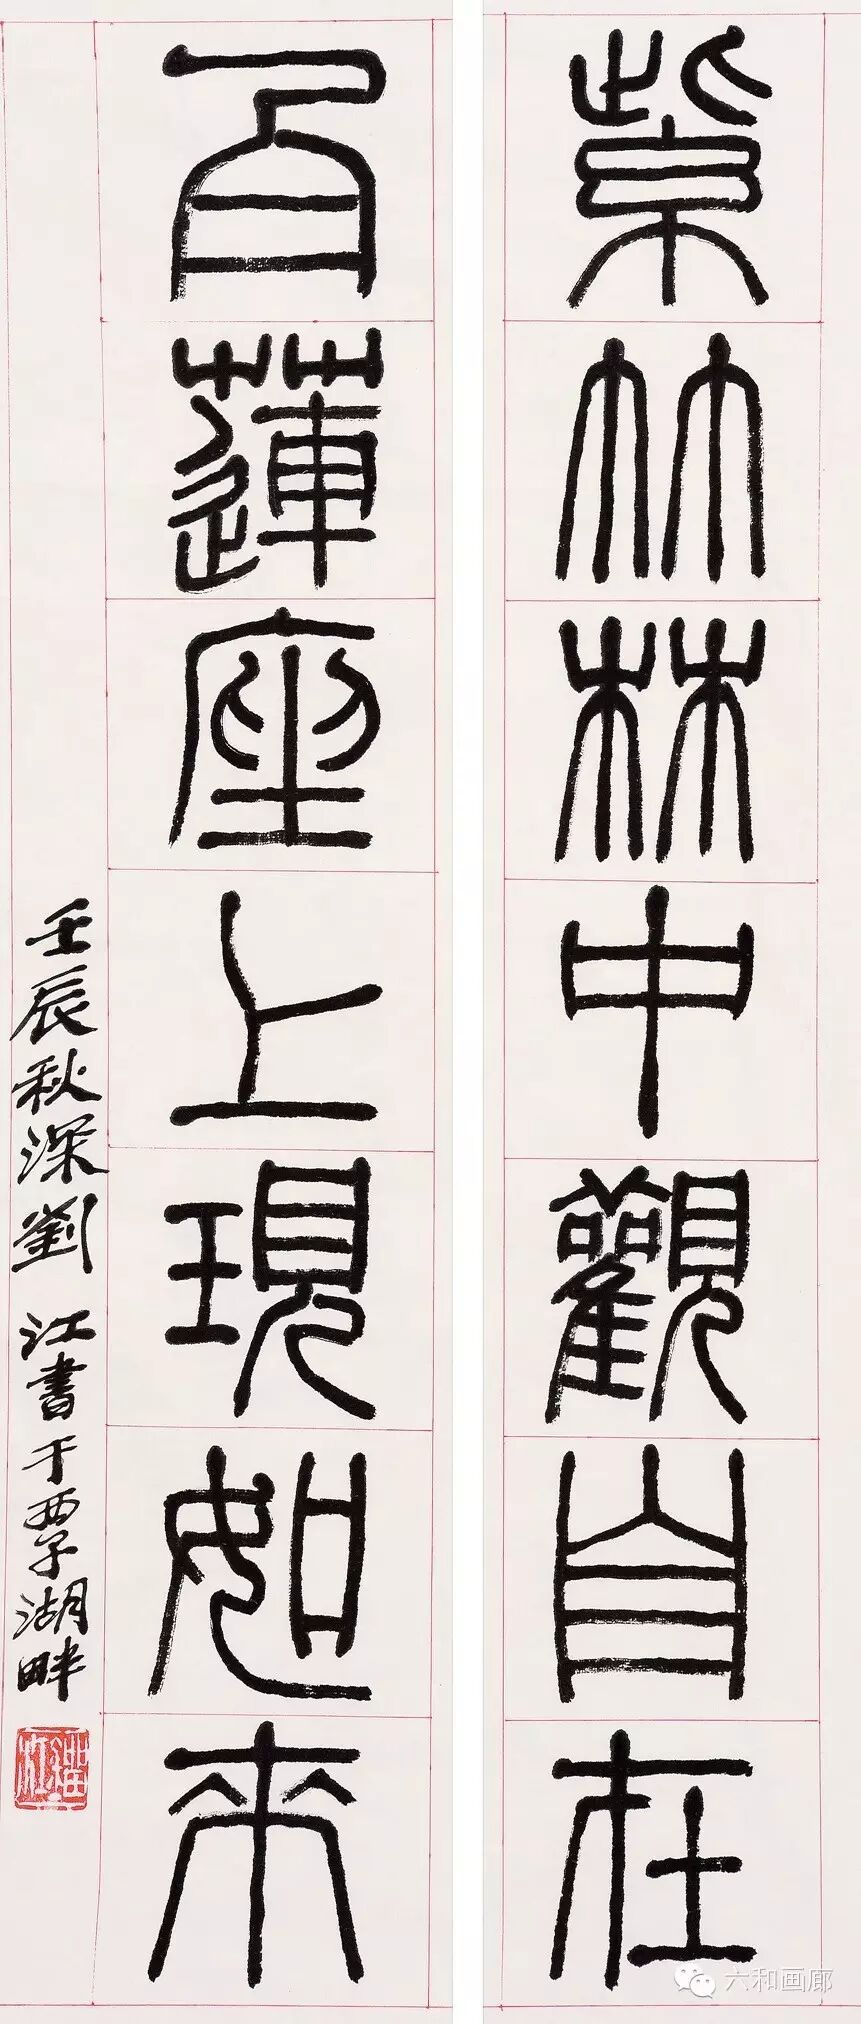 紫竹林中觀自在
百蓮座上現如來
壬辰秋深劉江書于西子湖畔
六和画廊